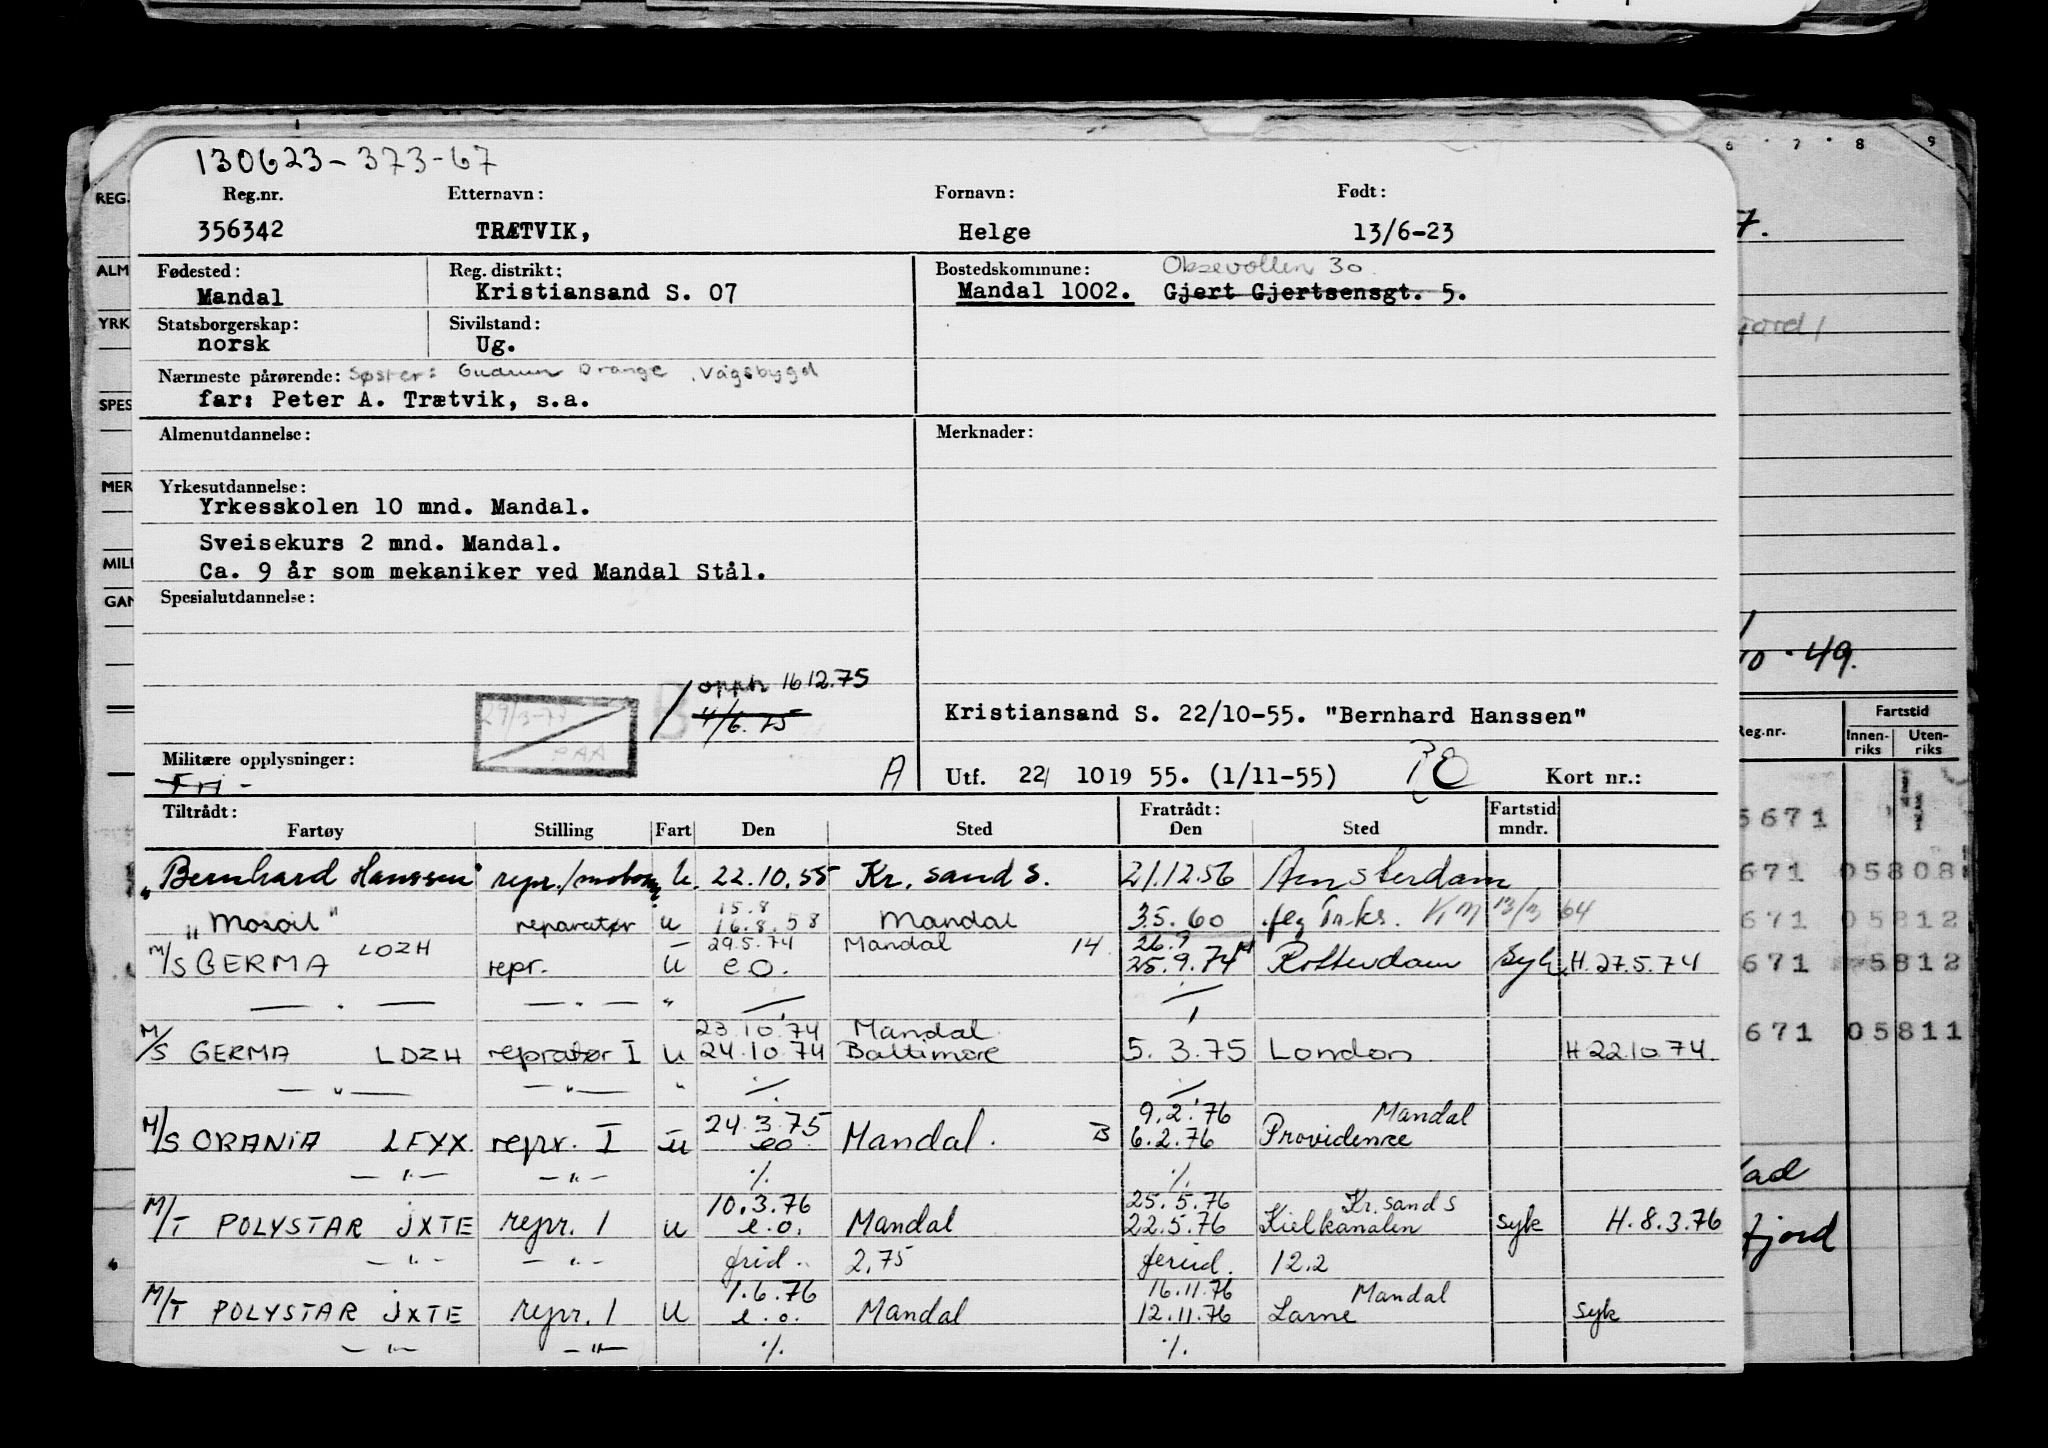 130623-373-67
Reg.nr. Etternavn: Fornavn: Født:
356342 TRÆTVIK, Helge 13/6-23
Fødested: Reg. distrikt: Bostedskommune: 30
Mandal Kristiansand S. 07 Mandal 1002. Gjert Gjertsensgt. 5.
Statsborgerskap: Sivilstand:
norsk Ug.
Nærmeste pårørende: Søster: Gudrun Orange, Vågsbygd
far: Peter A. Trætvik, s.a.
Almenutdannelse: Merknader:
Yrkesutdannelse:
Yrkesskolen 10 mnd. Mandal.
Sveisekurs 2 mnd. Mandal.
Ca. 9 år som mekaniker ved Mandal Stål.
Spesialutdannelse:
opph 16 12.75
4/6.75
Kristiansand S. 22/10-55. "Bernhard Hanssen"
Militære opplysninger:
Fri - A Utf. 22/ 10 19 55. (1/11-55) Kort nr.:
Tiltrådt: Fratrådt: Fartstid
Fartøy Stilling Fart Den Sted Den Sted mndr.
"Bernhard Hanssen" repr./motorm. U. 22.10.55 Kr. sand S. 21.12.56 Amsterdam
15.8
"Mosoil" reparatør u 16.8.58 Mandal 3.5.60 13/3 64
29.5.74 Mandal 14 26.9
M/S GERMA LDZH repr. U e.o. 25.9.74 Rotterdam Syk H. 27.5.74
— " — — " — " ./. ./.
23.10.74 Mandal
M/S GERMA LDZH repratør I u 24.10.74 Baltimore 5.3.75 London H 22.10.74
— " — — " — " ./. ./.
24.3.75 9.2.76 Mandal
M/S ORANIA LFYX repr. I u eo. Mandal. B 6.2.76 Providence
— " — — " — ./. ./.
10.3.76 25.5.76 Kr. sand S
M/T POLYSTAR JXTE repr. 1 u e.o. Mandal 22.5.76 Kielkanalen syk H. 8.3.76
— " — — " — 2.75 12.2
1.6.76 16.11.76 Mandal
M/T POLYSTAR JXTE repr. 1 U e.o. Mandal 12.11.76 Larne Syk
— " — — " — ./. ./.
REG.
ALM
YRK
SPES
MER
MILI
GAN
6 7 8 9
7.
fjord/
10.49.
Reg.nr. Fartstid
Innenriks Utenriks
5671
671 05808
671 05812
671 5812
671 05811
fjord